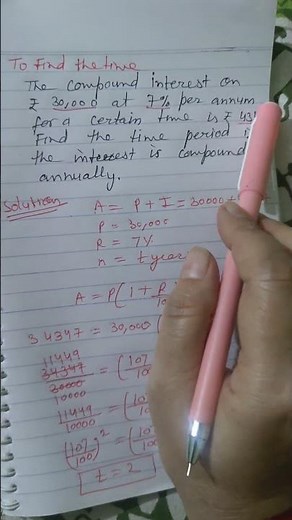 To Find the time
The compound interest on
₹ 30,000 at 7% per annum
for a certain time is ₹ 434
Find the time period
the interest is compound
annually.
Solution
A = P + I = 30000 +
P = 30,000
R = 7%
n = t year
A = P(1 + R/10
34347 = 30,000 (
11449
34347/30000 = (107/100
10000
11449/10000 = (10
(107/100)² = (10
t = 2